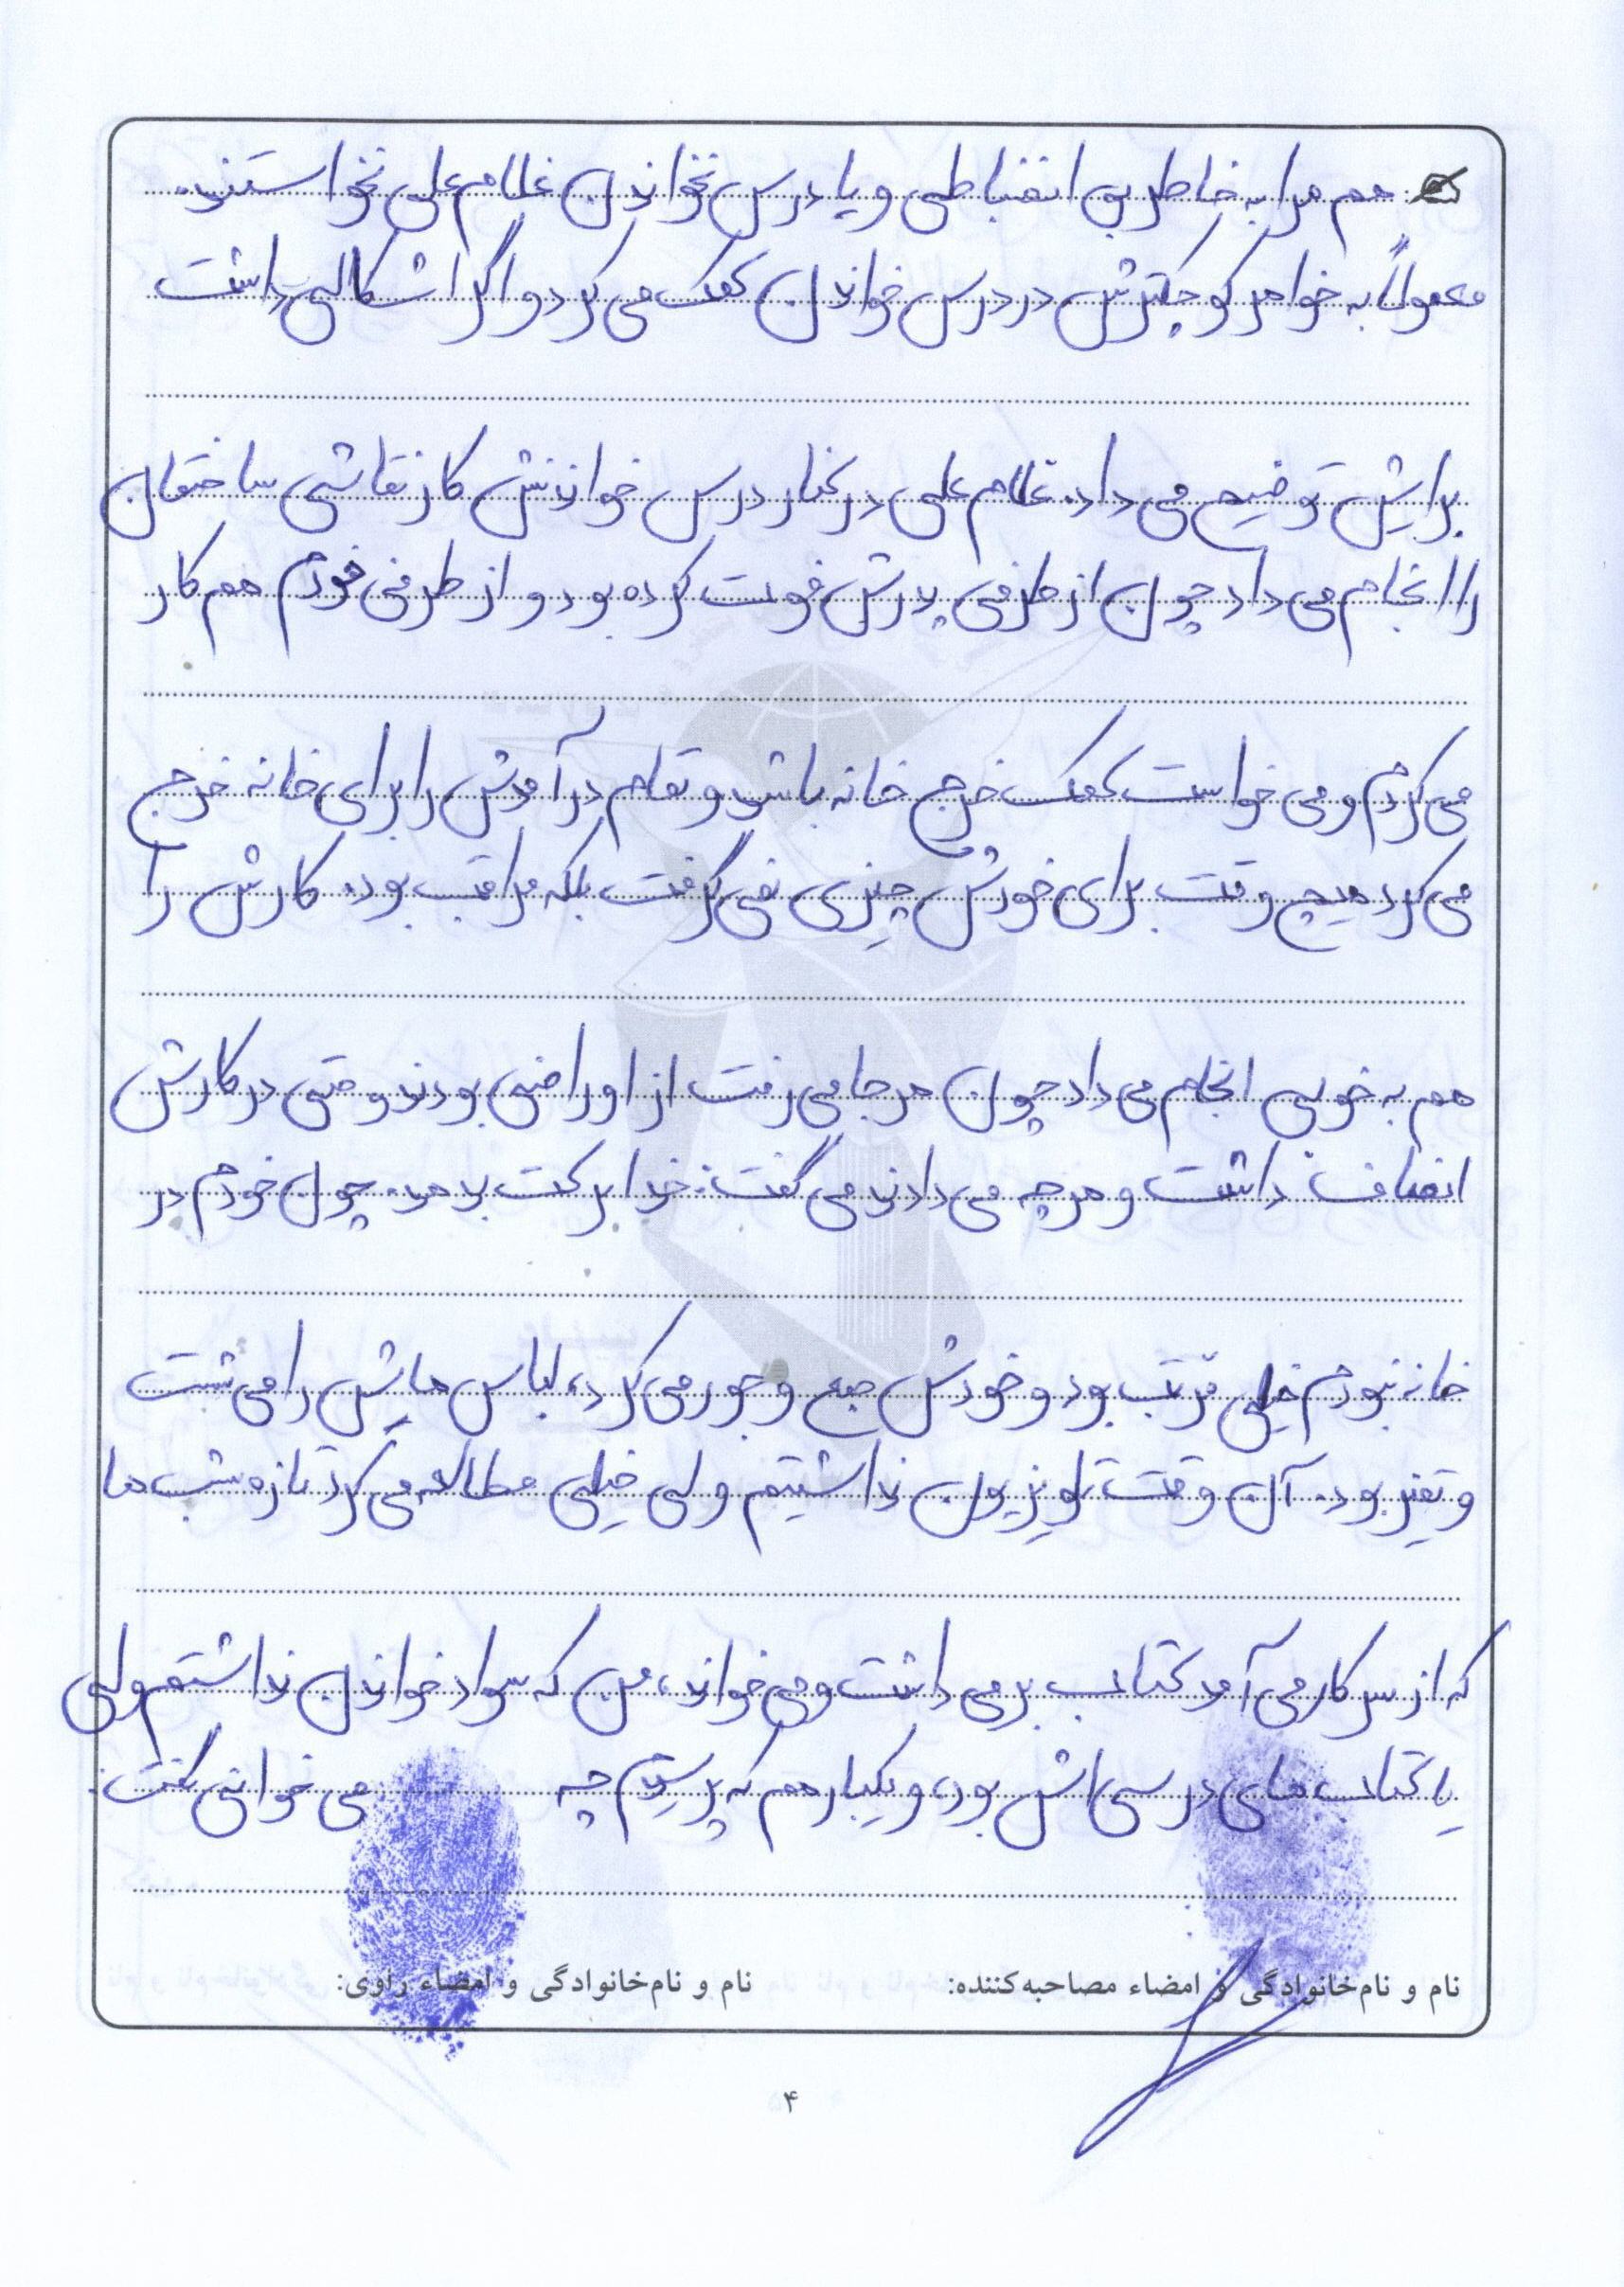 هم مرا به خاطر بی انضباطی و یا درس نخواندن غلامعلی نخواستند.
معمولاً به خواهر کوچکترش در درس خواندن کمک می کرد و اگر اشکالی داشت
برایش توضیح می داد. غلامعلی در کنار درس خواندنش کار نقاشی ساختمان
را انجام می داد چون از طرفی پدرش فوت کرده بود و از طرفی خودم هم کار
می کردم و می خواست کمک خرج خانه باشد و تمام درآمدش را برای خانه خرج
می کرد هیچ وقت برای خودش چیزی نمی گرفت بلکه مراقب بود. کارش را
هم به خوبی انجام می داد چون هر جا می رفت از او راضی بودند و حتی در کارش
انصاف داشت و هر چه می دادند می گفت: خدا برکت بدهد. چون خودم در
خانه نبودم خیلی مرتّب بود و خودش جمع و جور می کرد، لباس هایش را می شست
و تمیز بود. آن وقت تلویزیون نداشتیم ولی خیلی مطالعه می کرد تازه شب ها
که از سر کار می آمد کتاب بر می داشت و می خواند، من که سواد خواندن نداشتم ولی
یا کتاب های درسی اش بود، و یکبار هم که پرسیدم چه می خوانی گفت:
نام و نام‌خانوادگی و امضاء مصاحبه‌کننده:
نام و نام‌خانوادگی و امضاء راوی:
۴